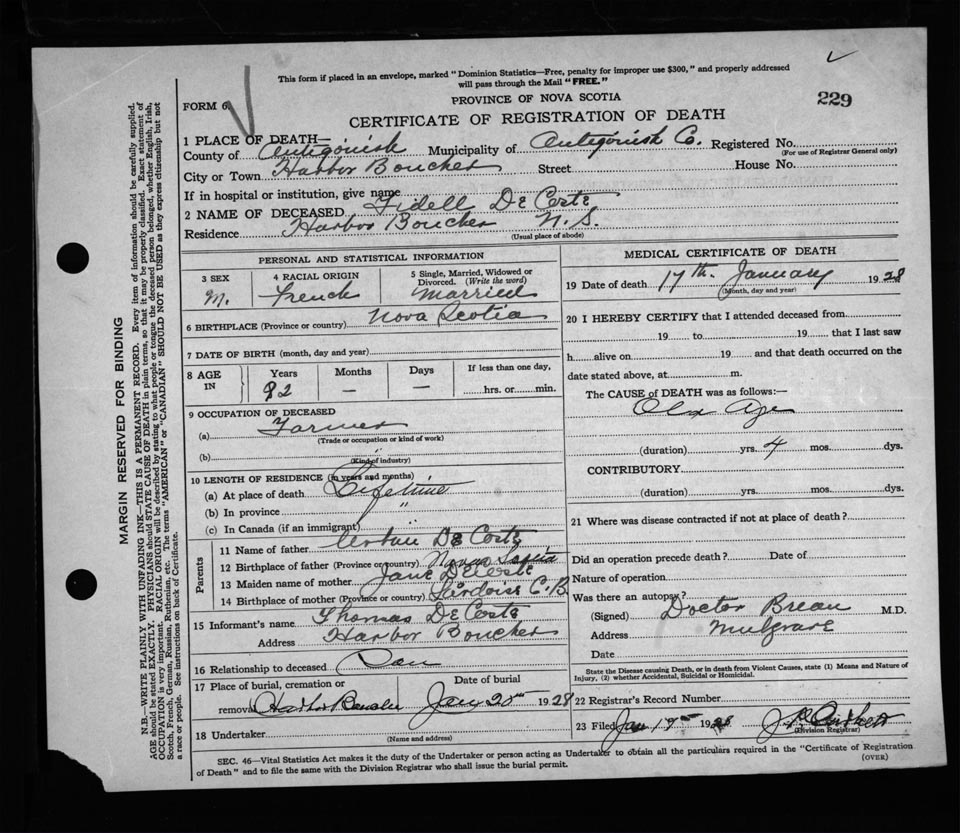 This form if placed in an envelope, marked "Dominion Statistics—Free, penalty for improper use $300," and properly addressed
will pass through the Mail "FREE."
229
FORM 6
PROVINCE OF NOVA SCOTIA
CERTIFICATE OF REGISTRATION OF DEATH
1 PLACE OF DEATH—
County of Antigonish Municipality of Antigonish Co. Registered No.
(For use of Registrar General only)
City or Town Harbor Boucher Street House No.
If in hospital or institution, give name
2 NAME OF DECEASED Fidell De Coste
Residence Harbor Boucher N.S.
(Usual place of abode)
PERSONAL AND STATISTICAL INFORMATION
3 SEX
M.
4 RACIAL ORIGIN
French
5 Single, Married, Widowed or
Divorced. (Write the word)
Married
6 BIRTHPLACE (Province or country) Nova Scotia
7 DATE OF BIRTH (month, day and year)
8 AGE
IN
Years
Months
Days
If less than one day,
82 — — hrs. or min.
9 OCCUPATION OF DECEASED
(a) Farmer
(Trade or occupation or kind of work)
(b)
(Kind of industry)
10 LENGTH OF RESIDENCE (in years and months)
(a) At place of death Lifetime
(b) In province "
(c) In Canada (if an immigrant)
Parents
11 Name of father De Coste
12 Birthplace of father (Province or country) Nova Scotia
13 Maiden name of mother Jane DeCoste
14 Birthplace of mother (Province or country) C.B.
15 Informant's name Thomas De Coste
Address Harbor Boucher
16 Relationship to deceased
17 Place of burial, cremation or
removal Harbor Boucher
Date of burial
Jany 20th 1928
18 Undertaker
(Name and address)
MEDICAL CERTIFICATE OF DEATH
19 Date of death 17th January 1928
(Month, day and year)
20 I HEREBY CERTIFY that I attended deceased from
19 to 19 that I last saw
h alive on 19 and that death occurred on the
date stated above, at m.
The CAUSE of DEATH was as follows:—
Old Age
(duration) yrs. 4 mos. dys.
CONTRIBUTORY
(duration) yrs. mos. dys.
21 Where was disease contracted if not at place of death?
Did an operation precede death? Date of
Nature of operation
Was there an autopsy?
(Signed) Doctor Brean M.D.
Address Mulgrave
Date
State the Disease causing Death, or in death from Violent Causes, state (1) Means and Nature of
Injury, (2) whether Accidental, Suicidal or Homicidal.
22 Registrar's Record Number
23 Filed Jan 19th 1928
(Division Registrar)
SEC. 46—Vital Statistics Act makes it the duty of the Undertaker or person acting as Undertaker to obtain all the particulars required in the "Certificate of Registration
of Death" and to file the same with the Division Registrar who shall issue the burial permit.
(OVER)
MARGIN RESERVED FOR BINDING
N.B.—WRITE PLAINLY WITH UNFADING INK—THIS IS A PERMANENT RECORD. Every item of information should be carefully supplied.
AGE should be stated EXACTLY. PHYSICIANS should STATE CAUSE OF DEATH in plain terms, so that it may be properly classified. Exact statement of
OCCUPATION is very important. RACIAL ORIGIN will be described by stating to what people or tongue the deceased person belonged, whether English, Irish,
Scotch, French, German, Russian, Ruthenian, etc. The terms "AMERICAN" or "CANADIAN" SHOULD NOT BE USED as they express citizenship but not
a race or people. See instructions on back of Certificate.